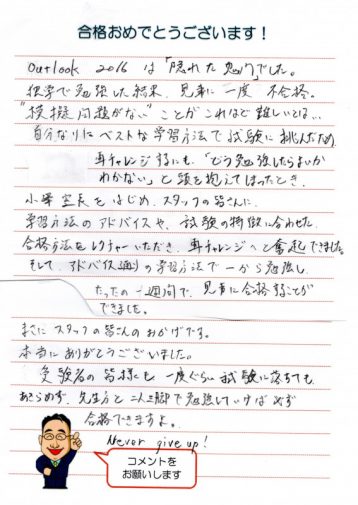 合格おめでとうございます!
Outlook 2016 は「隠れた鬼門」でした。
独学で勉強した結果、見事に一度 不合格。
"模擬問題がない" ことがこれほど難しいとは…
自分なりにベストな学習方法で試験に挑んだため、
再チャレンジする際にも、「どう勉強したらよいか
わからない」と頭を抱えてしまったとき、
室長をはじめ、スタッフの皆さんに、
学習方法のアドバイスや、試験の特徴に合わせた
合格方法をレクチャーいただき、再チャレンジへと奮起できました。
そして、アドバイス通りの学習方法で一から勉強し、
たったの一週間で、見事に合格することが
できました。
まさに スタッフの皆さんのおかげです。
本当に ありがとうございました。
受験者の皆様にも 一度ぐらい 試験に落ちても、
あきらめず、先生方と二人三脚で勉強していけば必ず
合格できますよ。
Never give up!
コメントを
お願いします